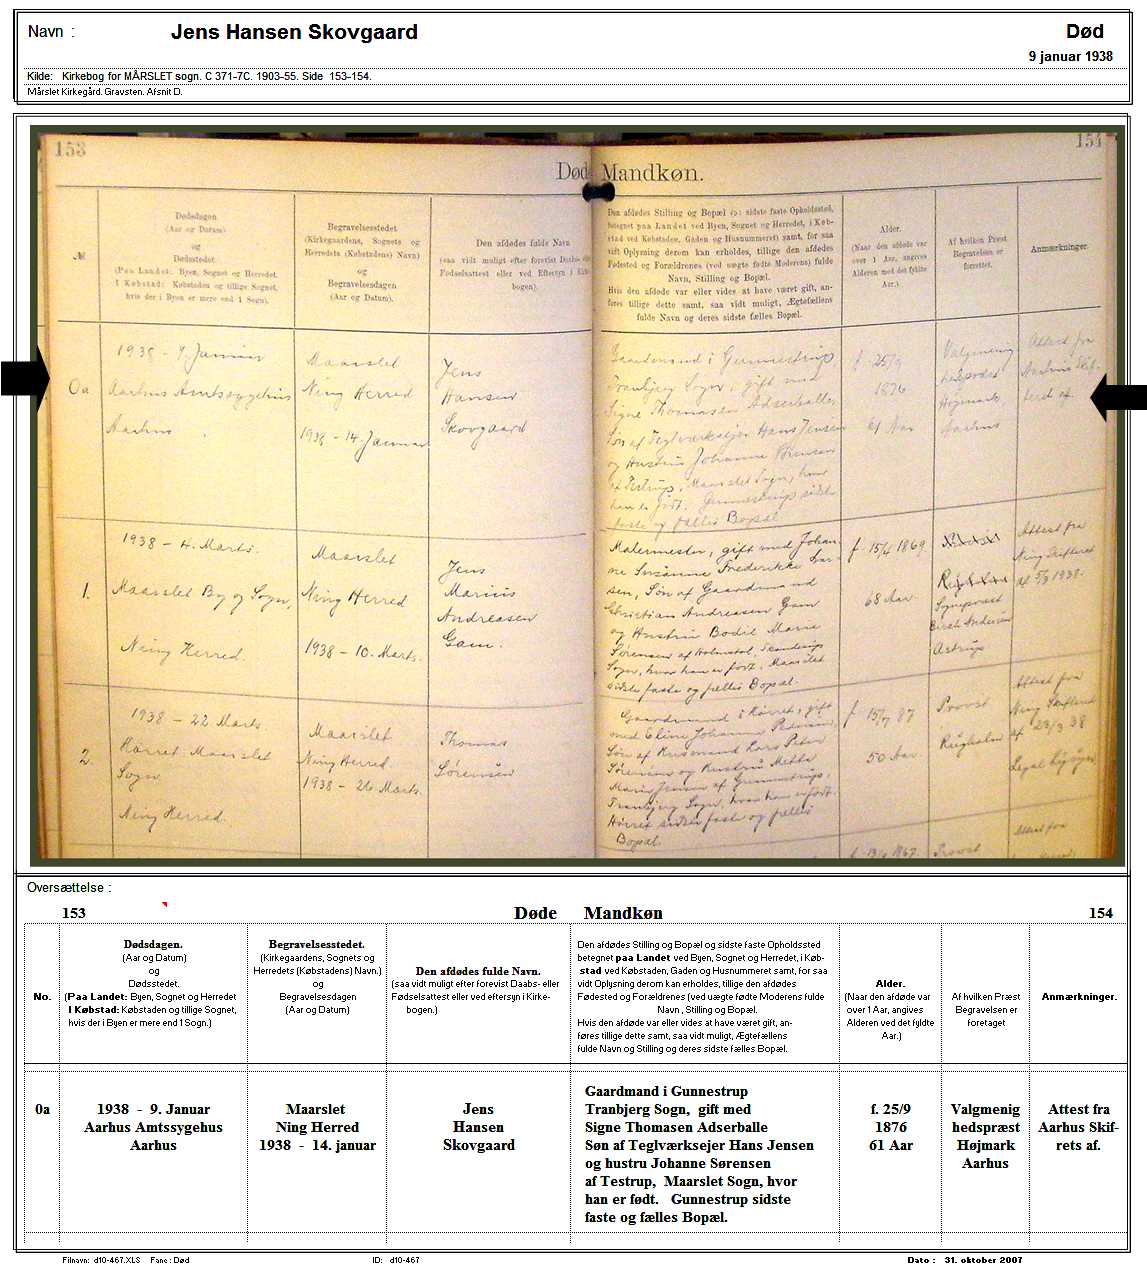 Navn :
Jens Hansen Skovgaard
Død
9 januar 1938
Kilde: Kirkebog for MÅRSLET sogn. C 371-7C. 1903-55. Side 153-154.
Mårslet Kirkegård. Gravsten. Afsnit D.
153
154
Døde Mandkøn.
№
Dødsdagen
(Aar og Datum)
og
Dødsstedet.
(Paa Landet: Byen, Sognet og Herredet.
I Købstad: Købstaden og tillige Sognet,
hvis der i Byen er mere end 1 Sogn).
Begravelsesstedet
(Kirkegaardens, Sognets og
Herredets (Købstadens) Navn)
og
Begravelsesdagen
(Aar og Datum).
Den afdødes fulde Navn
(saa vidt muligt efter forevist Daabs- eller
Fødselsattest eller ved Eftersyn i Kirke-
bogen).
Den afdødes Stilling og Bopæl (ɔ: sidste faste Opholdssted,
betegnet paa Landet ved Byen, Sognet og Herredet, i Køb-
stad ved Købstaden, Gaden og Husnummeret) samt, for saa
vidt Oplysning derom kan erholdes, tillige den afdødes
Fødested og Forældrenes (ved uægte fødte Moderens) fulde
Navn, Stilling og Bopæl.
Hvis den afdøde var eller vides at have været gift, an-
føres tillige dette samt, saa vidt muligt, Ægtefællens
fulde Navn og deres sidste fælles Bopæl.
Alder.
(Naar den afdøde var
over 1 Aar, angives
Alderen med det fyldte
Aar.)
Af hvilken Præst
Begravelsen er
forrettet.
Anmærkninger.
0a
1938 - 9. Januar
Aarhus Amtssygehus
Aarhus
Maarslet
Ning Herred
1938 - 14. Januar
Jens
Hansen
Skovgaard
Gaardmand i Gunnestrup,
Tranbjerg Sogn, gift med
Signe Thomasen Adserballe,
Søn af Teglværksejer Hans Jensen
og Hustru Johanne Sørensen
af Testrup, Maarslet Sogn, hvor
han er født. Gunnestrup sidste
faste og fælles Bopæl
f. 25/9
1876
61 Aar
Valgmenig
hedspræst
Højmark,
Aarhus
Attest fra
Aarhus Skif-
teret af.
1.
1938 - 4. Marts.
Maarslet By og Sogn,
Ning Herred.
Maarslet
Ning Herred
1938 - 10. Marts.
Jens
Marius
Andreasen
Gam.
Malermester, gift med Johan-
ne Susanne Frederikke Lar-
sen, Søn af Gaardmand
Christian Andreasen Gam
og Hustru Bodil Marie
Sørensen af
Sogn, hvor han er født. Maarslet
sidste faste og fælles Bopæl.
f. 15/4 1869
68 Aar.
Sognepræst
Birch Andersen
Astrup
Attest fra
Ning Skifteret
af 5/3 1938.
2.
1938 - 22 Marts.
Hørret Maarslet
Sogn
Ning Herred.
Maarslet
Ning Herred.
1938 - 26 Marts.
Thomas
Sørensen
Gaardmand i Hørret, gift
med Eline Johanne Petersen,
Søn af Husmand Lars Peter
Sørensen og Hustru Mette
Marie Jensen af Gunnestrup,
Tranbjerg Sogn, hvor han er født.
Hørret sidste faste og fælles
Bopæl
f. 15/7 87
50 Aar.
Provst
Rugholm
Attest fra
Ning Skifteret
af 23/3 38
f. 13/4 1867.
Provst
Attest fra
Oversættelse :
153
Døde Mandkøn
154
No.
Dødsdagen.
(Aar og Datum)
og
Dødsstedet.
(Paa Landet: Byen, Sognet og Herredet
I Købstad: Købstaden og tillige Sognet,
hvis der i Byen er mere end 1 Sogn.)
Begravelsesstedet.
(Kirkegaardens, Sognets og
Herredets (Købstadens) Navn.)
og
Begravelsesdagen
(Aar og Datum)
Den afdødes fulde Navn.
(saa vidt muligt efter forevist Daabs- eller
Fødselsattest eller ved eftersyn i Kirke-
bogen.)
Den afdødes Stilling og Bopæl og sidste faste Opholdssted
betegnet paa Landet ved Byen, Sognet og Herredet, i Køb-
stad ved Købstaden, Gaden og Husnummeret samt, for saa
vidt Oplysning derom kan erholdes, tillige den afdødes
Fødested og Forældrenes (ved uægte fødte Moderens fulde
Navn , Stilling og Bopæl.
Hvis den afdøde var eller vides at have været gift, an-
føres tillige dette samt, saa vidt muligt, Ægtefællens
fulde Navn og Stilling og deres sidste fælles Bopæl.
Alder.
(Naar den afdøde var
over 1 Aar, angives
Alderen ved det fyldte
Aar.)
Af hvilken Præst
Begravelsen er
foretaget
Anmærkninger.
0a
1938 - 9. Januar
Aarhus Amtssygehus
Aarhus
Maarslet
Ning Herred
1938 - 14. januar
Jens
Hansen
Skovgaard
Gaardmand i Gunnestrup
Tranbjerg Sogn, gift med
Signe Thomasen Adserballe
Søn af Teglværksejer Hans Jensen
og hustru Johanne Sørensen
af Testrup, Maarslet Sogn, hvor
han er født. Gunnestrup sidste
faste og fælles Bopæl.
f. 25/9
1876
61 Aar
Valgmenig
hedspræst
Højmark
Aarhus
Attest fra
Aarhus Skif-
rets af.
Filnavn: d10-467.XLS Fane : Død
ID: d10-467
Dato : 31. oktober 2007